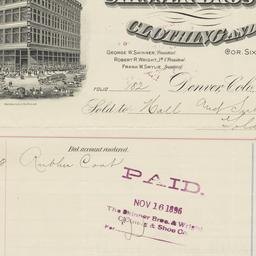 SKINNER BROS
CLOTHING AND
GEORGE W. SKINNER, President
COR. SIX
ROBERT R. WRIGHT, Jr. V. President
FRANK W. SMYLIE, Secretary
FOLIO 802
Denver, Colo.
Sold to Hall and
Past account rendered.
Rubber Coat
PAID.
NOV 16 1896
The Skinner Bros. & Wright
Clothing & Shoe Co.
Per